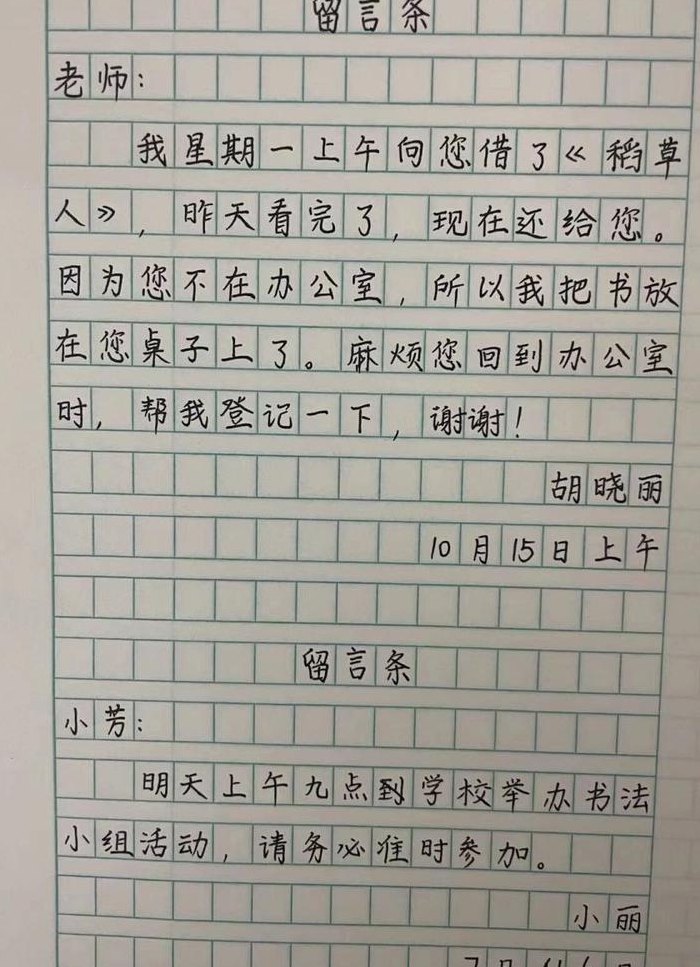 留言条
老师：
我星期一上午向您借了《稻草
人》，昨天看完了，现在还给您。
因为您不在办公室，所以我把书放
在您桌子上了。麻烦您回到办公室
时，帮我登记一下，谢谢！
胡晓丽
10月15日上午
留言条
小芳：
明天上午九点到学校举办书法
小组活动，请务必准时参加。
小丽